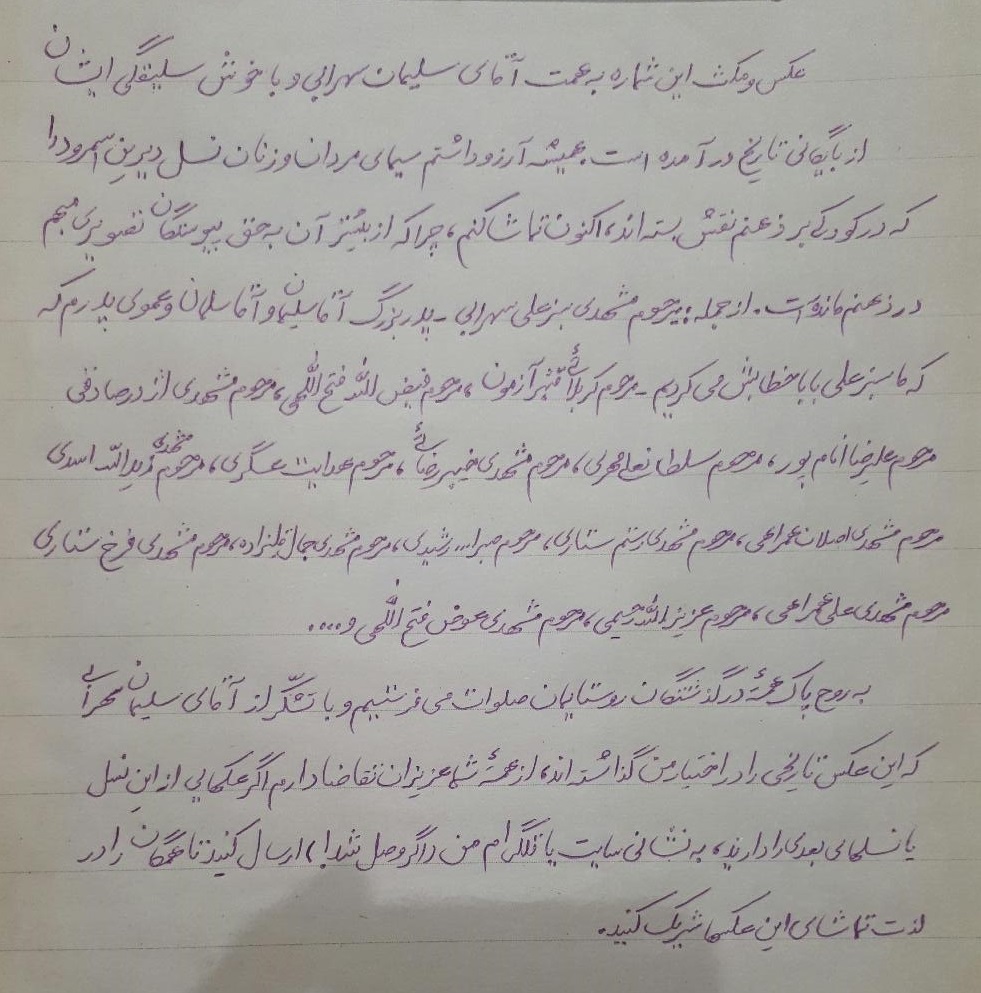 عکس و مکث این شماره به همت آقای سلیمان سهرابی و با خوش سلیقگی ایشان
از بایگانی تاریخ در آمده است. همیشه آرزو داشتم سیمای مردان و زنان نسل دیرین اسمرود را
که در کودکی بر ذهنم نقش بسته اند، اکنون تماشا کنم، چرا که از بیشتر آن به حق پیوستگان تصویری مبهم
در ذهنم مانده است. از جمله: مرحوم مشهدی سبزعلی سهرابی - پدربزرگ آقا سلیمان و آقا سلمان و عموی پدرم که
که ما سبزعلی بابا خطابش می کردیم - مرحوم کربلائی آزمون، مرحوم فیض الله فتح اللهی، مرحوم مشهدی اژدر صادقی
مرحوم علیرضا امام پور، مرحوم سلطانعلی مهری، مرحوم مشهدی رضائی، مرحوم هدایت عسگری، مرحوم مشهدی یدالله اسدی
مرحوم مشهدی اصلان همراهی، مرحوم مشهدی رستم ستاری، مرحوم رشیدی، مرحوم مشهدی، مرحوم مشهدی فرخ ستاری
مرحوم مشهدی علی همراهی، مرحوم عزیز الله رحیمی، مرحوم مشهدی عوض فتح اللهی و....
به روح پاک همهٔ درگذشتگان روستایمان صلوات می فرستیم و با تشکّر از آقای سلیمان
که این عکس تاریخی را در اختیار من گذاشته اند، از همهٔ شما عزیزان تقاضا دارم اگر عکسهایی از این نسل
یا نسلهای بعدی را دارید، به نشانی سایت یا تلگرام من (اگر وصل شد!) ارسال کنید تا همگان را در
لذت تماشای این عکسها شریک کنید.